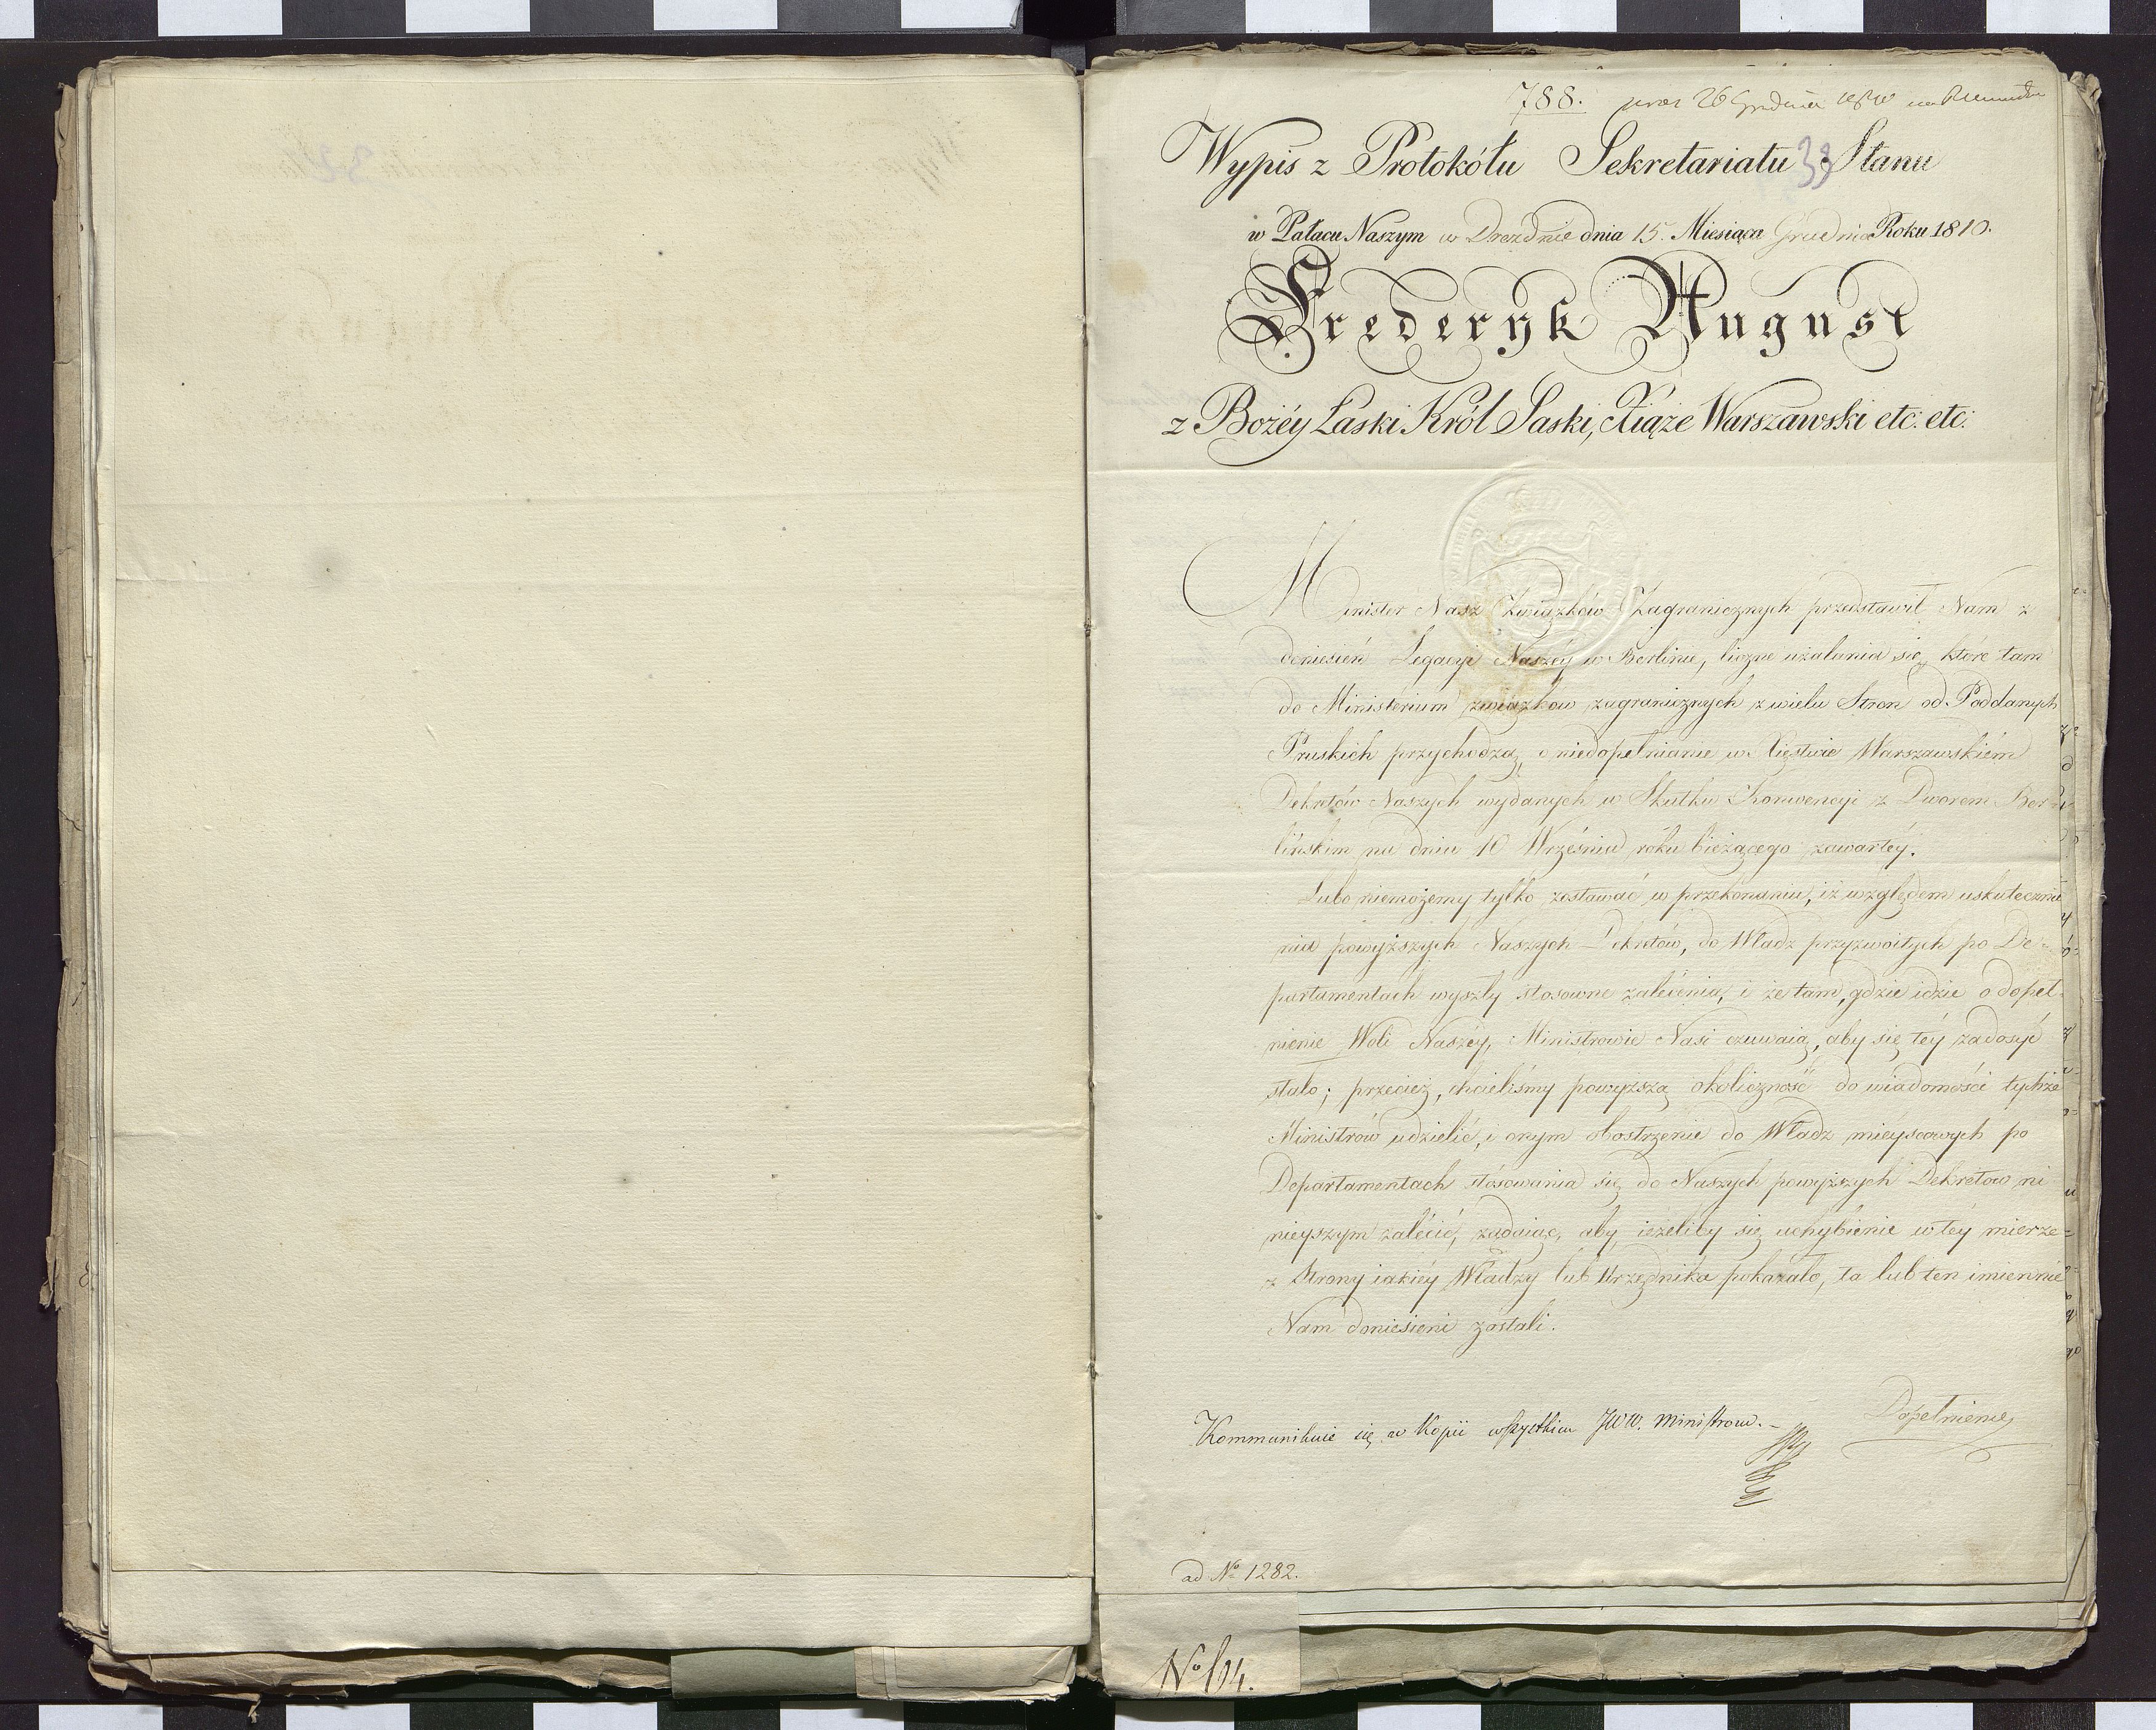 788. 26 Grudnia 1810
Wypis z Protokółu Sekretariatu Stanu
33
w Pałacu Naszym w Dreznie dnia 15. Miesiąca Grudnia Roku 1810.
Frederyk August
z Bożéy Łaski Król Saski, Xiąże Warszawski etc: etc:
Minister Nasz Związków Zagranicznych przedstawił Nam z
doniesień Legacyi Naszéy w Berlinie, liczne użalania się, które tam
do Ministerium związkow zagranicznych z wielu Stron od Poddanych
Pruskich przychodzą, o niedopełnianie w Xięstwie Warszawskiém
Dekretów Naszych wydanych w Skutku Konwencyi z Dworem Ber-
lińskim na dniu 10 Września roku bieżącego zawartéy.
Lubo niemożemy tylko zostawać w przekonaniu, iż względem uskutecznie
nia powyższych Naszych Dekretów, do Władz przyzwoitych po De-
partamentach wyszły stosowne zalécenia, i że tam, gdzie idzie o dopeł-
nienie Woli Naszéy, Ministrowie Nasi czuwaią, aby się téy zadosyć
stało; przecież, chcieliśmy powyższą okoliczność do wiadomości tychże
Ministrów udzielić, i onym obostrzenie do Władz mieyscowych po
Departamentach stósowania się do Naszych powyższych Dekretow ni
nieyszym zalécić, żądaiąc, aby, ieżeliby się uchybienie w téy mierze
z Strony iakiéy Władzy lub Urzędnika pokazało, ta lub ten imiennie
Nam doniesieni zostali.
Kommunikuie się w Kopii wszystkim JWW. Ministrom.-
Dopełnienie
ad No 1282.
No 104.